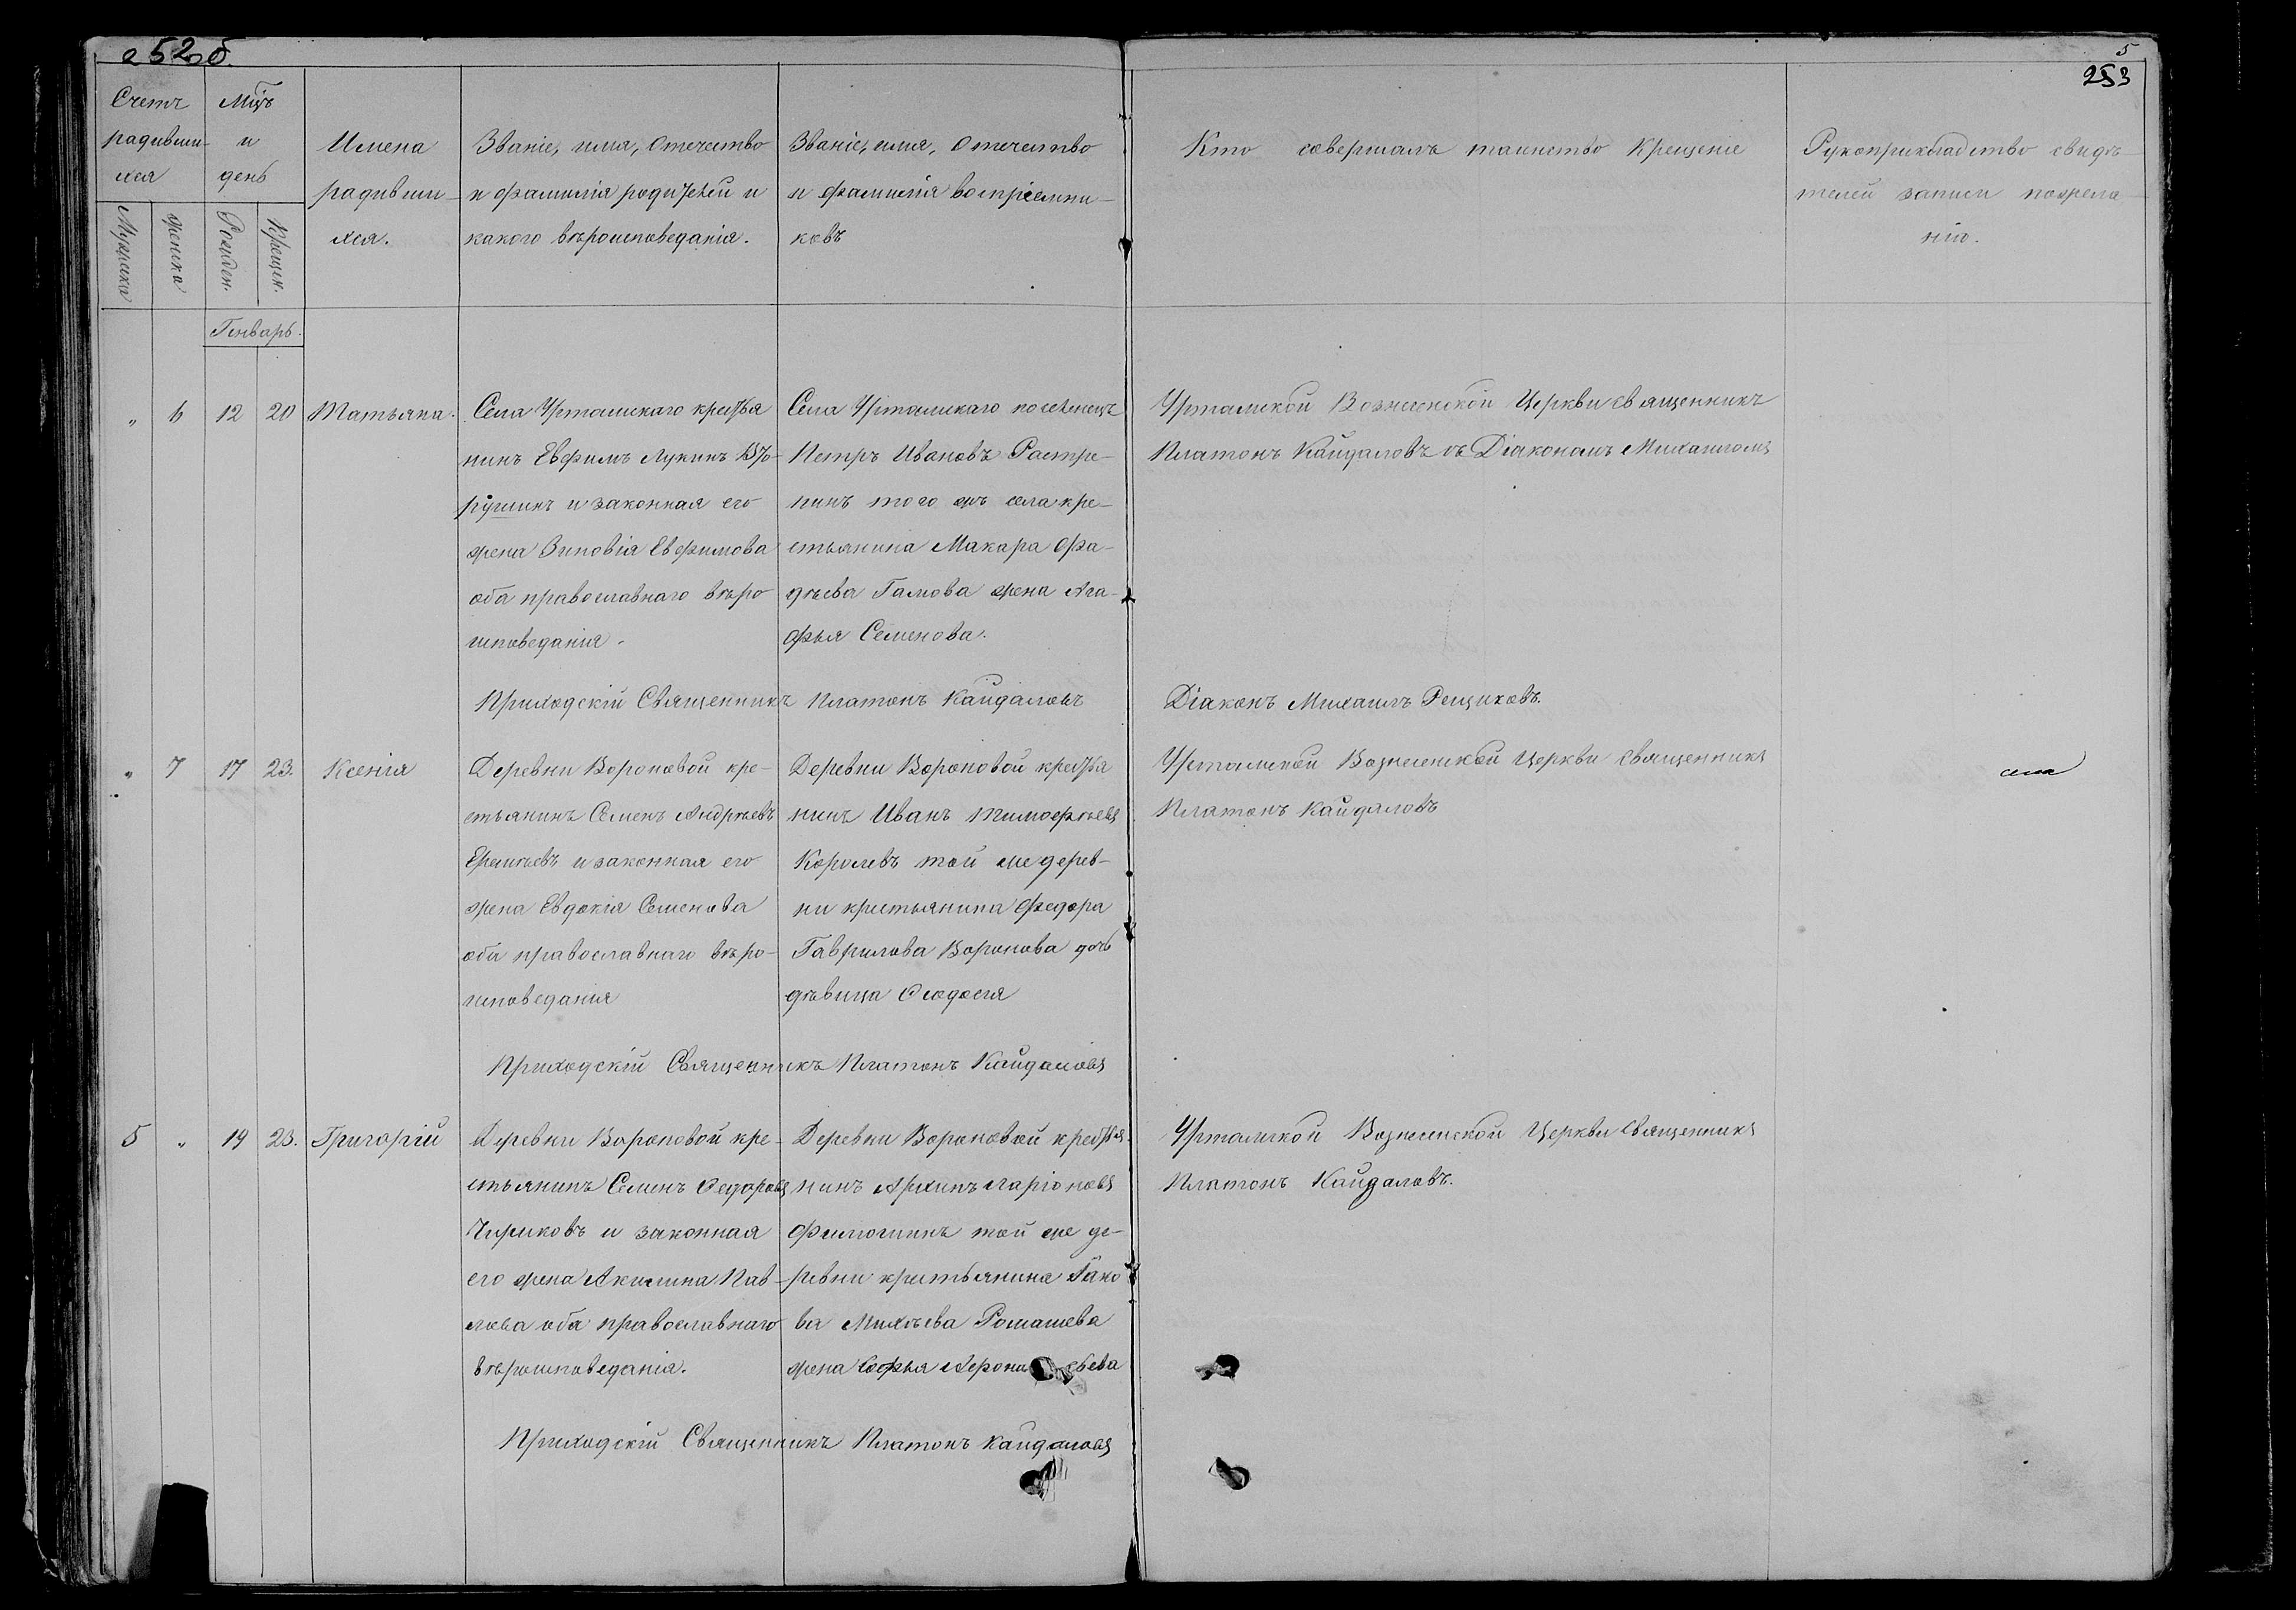 252об.
5
253
Счетъ
радивши-
хся
Мужска
Женска
Мцъ
и
день
Рожден.
Крещен.
Имена
радивши-
хся.
Званіе, имя, отечество
и фамилія родителей и
какого вѣроисповеданія.
Званіе, имя, отечество
и фамилія воспріемни-
ковъ
Кто совершалъ таинство крещеніе
Рукоприкладство свидѣ-
телей записи пожела-
нію.
Генварь.
„ 6 12 20 Татьяна.
Села Уртамскаго крестья
нинъ Евфимъ Лукинъ
и законная его
жена Зиновія Евфимова
оба православнаго вѣро
исповеданія.
Села Уртамскаго поселенецъ
Петръ Ивановъ Растре-
пинъ того жъ села кре-
стьянина Макара Фа-
дѣева Гамова жена Ага-
фья Семенова.
Уртамской Вознесенской Церкви священникъ
Платонъ Кайдаловъ съ Діакономъ Михаиломъ
Приходскій Священникъ Платонъ Кайдаловъ
Діаконъ Михаилъ Рещиковъ.
„ 7 17 23. Ксенія
Деревни Вороновой кре-
стьянинъ Семенъ Андрѣевъ
Еремѣевъ и законная его
жена Евдокія Семенова
оба православнаго вѣро-
исповедания
Деревни Вороновой крестья
нинъ Иванъ Тимофѣевъ
Королевъ той же дерев-
ни крестьянина Федора
Гаврилова Воронова дочь
дѣвица Феодосія
Уртамской Вознесенской Церкви священникъ
Платонъ Кайдаловъ
Приходскій Священникъ Платонъ Кайдаловъ
5 „ 19 23. Григорій
Деревни Вороновой кре-
стьянинъ Семенъ Федоровъ
Чириковъ и законная
его жена Акилина Пав-
лова оба православнаго
вѣроисповеданія.
Деревни Вороновой крестья-
нинъ Архипъ Ларіоновъ
Филюшинъ той же де-
ревни крестьянина Яко
ва Михѣева Ромашева
жена Софья
Уртамской Вознесенской Церкви священникъ
Платонъ Кайдаловъ.
Приходскій Священникъ Платонъ Кайдаловъ